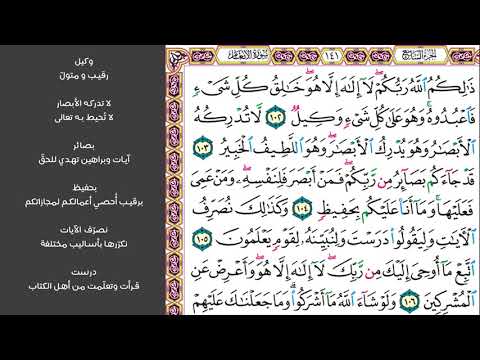 الجزء السابع
١٤١
سورة الأنعام
ذَٰلِكُمُ ٱللَّهُ رَبُّكُمْ ۖ لَآ إِلَٰهَ إِلَّا هُوَ ۖ خَٰلِقُ كُلِّ شَىْءٍ
فَٱعْبُدُوهُ ۚ وَهُوَ عَلَىٰ كُلِّ شَىْءٍ وَكِيلٌ ١٠٢ لَّا تُدْرِكُهُ
ٱلْأَبْصَٰرُ وَهُوَ يُدْرِكُ ٱلْأَبْصَٰرَ ۖ وَهُوَ ٱللَّطِيفُ ٱلْخَبِيرُ ١٠٣
قَدْ جَآءَكُم بَصَآئِرُ مِن رَّبِّكُمْ ۖ فَمَنْ أَبْصَرَ فَلِنَفْسِهِۦ ۖ وَمَنْ عَمِىَ
فَعَلَيْهَا ۚ وَمَآ أَنَا۠ عَلَيْكُم بِحَفِيظٍ ١٠٤ وَكَذَٰلِكَ نُصَرِّفُ
ٱلْءَايَٰتِ وَلِيَقُولُوا۟ دَرَسْتَ وَلِنُبَيِّنَهُۥ لِقَوْمٍ يَعْلَمُونَ ١٠٥
ٱتَّبِعْ مَآ أُوحِىَ إِلَيْكَ مِن رَّبِّكَ ۖ لَآ إِلَٰهَ إِلَّا هُوَ ۖ وَأَعْرِضْ عَنِ
ٱلْمُشْرِكِينَ ١٠٦ وَلَوْ شَآءَ ٱللَّهُ مَآ أَشْرَكُوا۟ ۗ وَمَا جَعَلْنَٰكَ عَلَيْهِمْ
وكيل
رقيب و متولّ
لا تدركه الأبصار
لا تُحيط به تعالى
بصائر
آيات وبراهين تهدي للحقّ
بحفيظ
برقيب أُحصي أعمالكم لمجازاتكم
نصرّف الآيات
نكرّرها بأساليب مختلفة
درست
قرأت وتعلّمت من أهل الكتاب